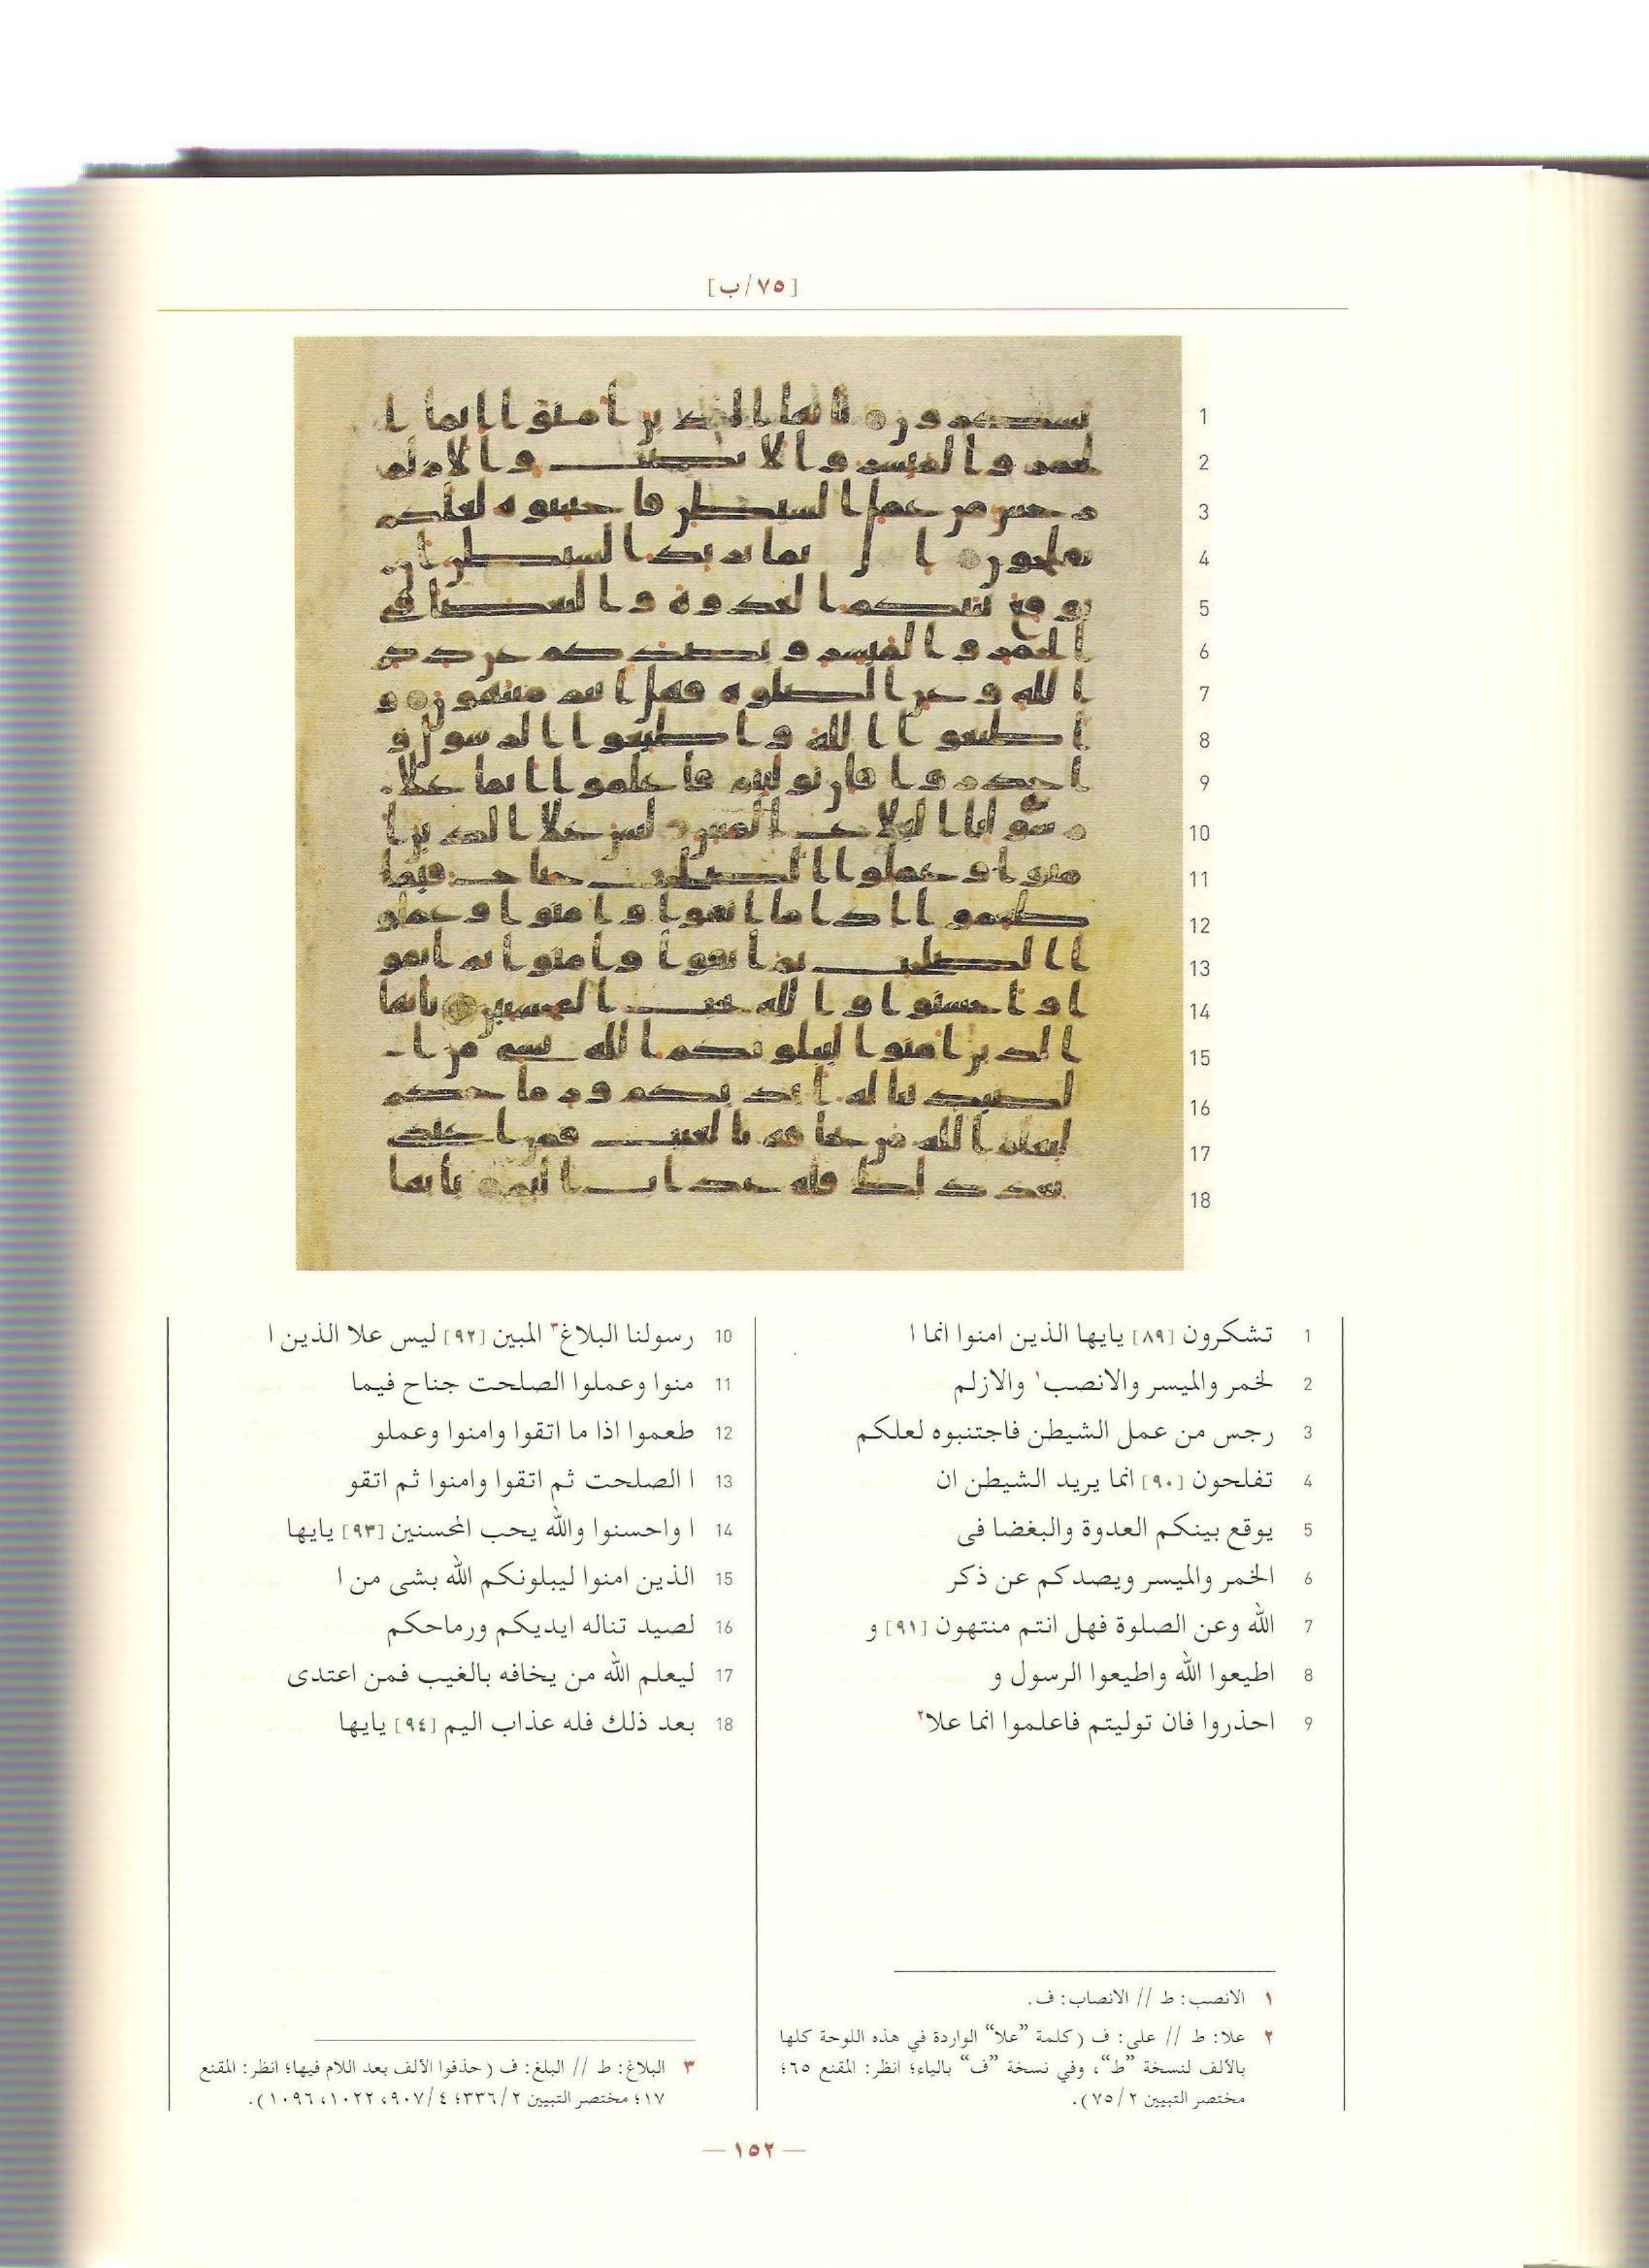 [٧٥/ب]
1 تشكرون [٨٩] يايها الذين امنوا انما ا
2 لخمر والميسر والانصب١ والازلم
3 رجس من عمل الشيطن فاجتنبوه لعلكم
4 تفلحون [٩٠] انما يريد الشيطن ان
5 يوقع بينكم العدوة والبغضا فى
6 الخمر والميسر ويصدكم عن ذكر
7 الله وعن الصلوة فهل انتم منتهون [٩١] و
8 اطيعوا الله واطيعوا الرسول و
9 احذروا فان توليتم فاعلموا انما علا٢
10 رسولنا البلاغ٣ المبين [٩٢] ليس علا الذين ا
11 منوا وعملوا الصلحت جناح فيما
12 طعموا اذا ما اتقوا وامنوا وعملو
13 ا الصلحت ثم اتقوا وامنوا ثم اتقو
14 ا واحسنوا والله يحب المحسنين [٩٣] يايها
15 الذين امنوا ليبلونكم الله بشى من ا
16 لصيد تناله ايديكم ورماحكم
17 ليعلم الله من يخافه بالغيب فمن اعتدى
18 بعد ذلك فله عذاب اليم [٩٤] يايها
١ الانصب: ط // الانصاب: ف.
٢ علا: ط // على: ف (كلمة “علا“ الواردة في هذه اللوحة كلها
بالألف لنسخة “ط“، وفي نسخة “ف“ بالياء؛ انظر: المقنع ٦٥؛
مختصر التبيين ٢/٧٥).
٣ البلاغ: ط // البلغ: ف (حذفوا الألف بعد اللام فيها؛ انظر: المقنع
١٧؛ مختصر التبيين ٢/٣٣٦؛ ٤/٩٠٧، ١٠٢٢، ١٠٩٦).
— ١٥٢ —